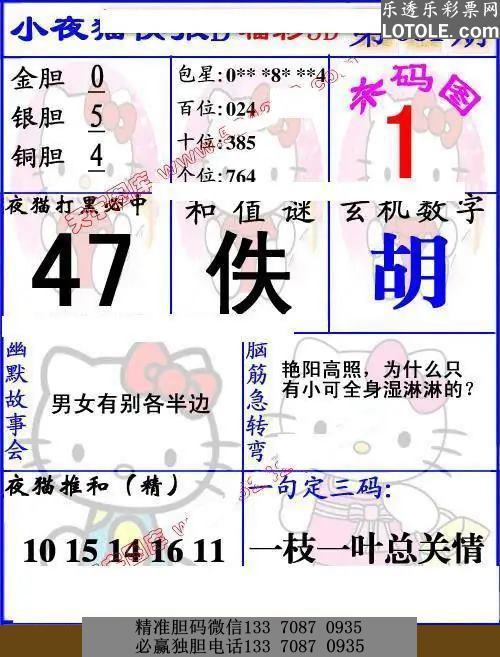 乐透乐彩票网
LOTOLE.COM
小夜猫
福彩3D
第
期
金胆 0
银胆 5
铜胆 4
包星:0** *8* **4
百位:024
十位:385
个位:764
来码图
1
夜猫打黑必中
47
和值谜
佚
玄机数字
胡
幽默故事会
男女有别各半边
脑筋急转弯
艳阳高照，为什么只
有小可全身湿淋淋的？
夜猫推和（精）
10 15 14 16 11
一句定三码:
一枝一叶总关情
精准胆码微信133 7087 0935
必赢独胆电话133 7087 0935